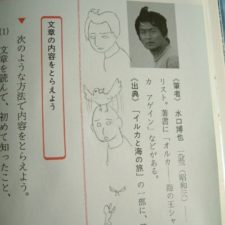 《筆者》水口博也 一九五三(昭和二
リスト。著書に「オルカ──海の王シャ
カ アゲイン」などがある。
《出典》「イルカと海の旅」の一部に、
文章の内容をとらえよう
▼次のような方法で内容をとらえよう。
(1) 文章を読んで、初めて知ったこと、